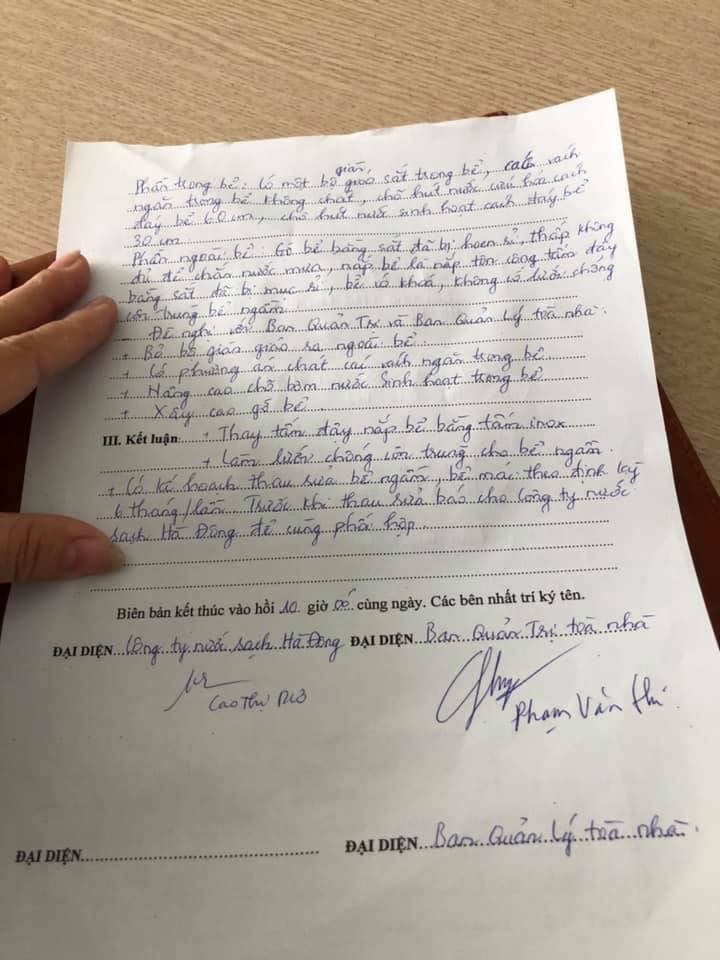 Phần trong bể: Có một bộ giàn giáo sắt trong bể, các vách
ngăn trong bể không chát, chõ hút nước cứu hỏa cách
đáy bể 60 cm, chõ hút nước sinh hoạt cách đáy bể
30 cm
Phần ngoài bể: Gờ bể bằng sắt đã bị hoen sỉ, thấp không
đủ để chắn nước mưa, nắp bể là nắp tôn, công tấm đậy
bằng sắt đã bị mục sỉ, bể có khoá, không có lưới chống
côn trùng bể ngầm
- Đề nghị với Ban Quản Trị và Ban Quản Lý toà nhà.
+ Bỏ bộ giàn giáo ra ngoài bể.
+ Có phương án chát các vách ngăn trong bể.
+ Nâng cao chõ bơm nước sinh hoạt trong bể
+ Xây cao gờ bể.
III. Kết luận: + Thay tấm đậy nắp bể bằng tấm inox
+ Làm lưới chống côn trùng cho bể ngầm.
+ Có kế hoạch thau sửa bể ngầm, bể mái theo định kỳ
6 tháng/lần. Trước khi thau sửa báo cho Công ty nước
sạch Hà Đông để cùng phối hợp.
Biên bản kết thúc vào hồi 10 giờ 00 cùng ngày. Các bên nhất trí ký tên.
ĐẠI DIỆN Công ty nước sạch Hà Đông ĐẠI DIỆN Ban Quản Trị toà nhà
Cao Thị
Phạm Văn
ĐẠI DIỆN ĐẠI DIỆN Ban Quản Lý toà nhà.